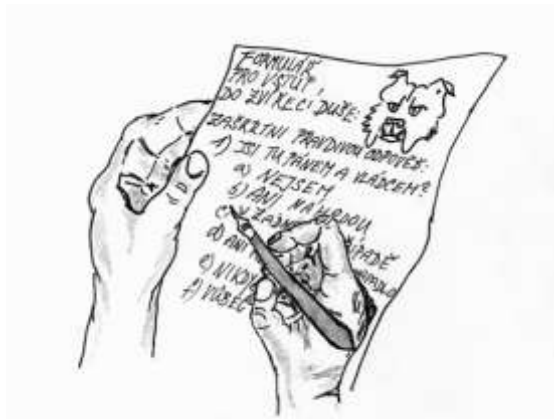 FORMULÁŘ
PRO VSTUP
DO ZVÍŘECÍ DUŠE:
ZAŠKRTNI PRAVDIVOU ODPOVĚĎ:
1) JSI TU PÁNEM A VLÁDCEM?
a) NEJSEM
b) ANI NÁHODOU
c) V ŽÁDNÉM PŘÍPADĚ
d) ANI
e)
f) VŮBEC